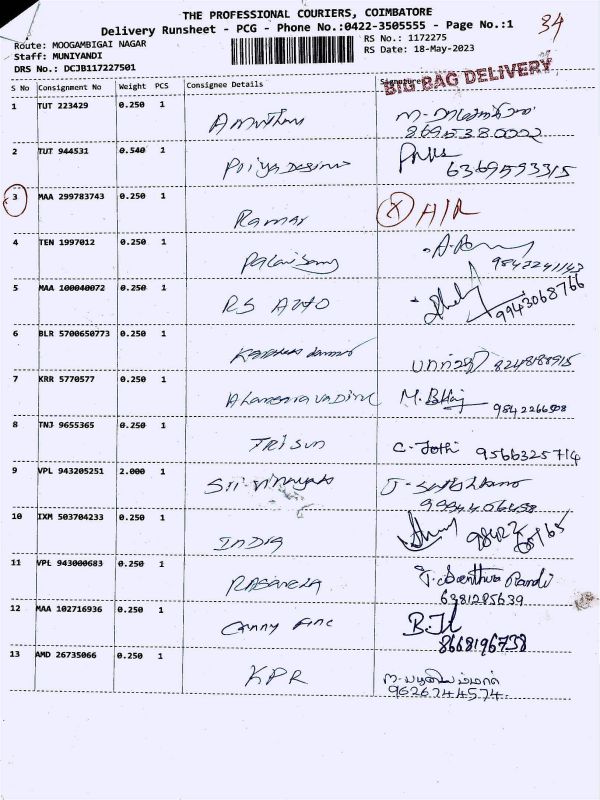 THE PROFESSIONAL COURIERS, COIMBATORE
Delivery Runsheet - PCG - Phone No.:0422-3505555 - Page No.:1
34
Route: MOOGAMBIGAI NAGAR
RS No.: 1172275
Staff: MUNIYANDI
RS Date: 18-May-2023
DRS No.: DCJB117227501
BIG BAG DELIVERY
S No Consignment No Weight PCS Consignee Details Signature
1 TUT 223429 0.250 1
8695380002
2 TUT 944531 0.540 1
6369593315
3 MAA 299783743 0.250 1 Ramar
4 TEN 1997012 0.250 1 Palanisamy
5 MAA 100040072 0.250 1 RS AUTO
9943068766
6 BLR 5700650773 0.250 1
8248188915
7 KRR 5770577 0.250 1 M. Bhaj
9842266508
8 TNJ 9655365 0.250 1 TRISUN C. Jothi 9566325714
9 VPL 943205251 2.000 1 Sri-Vinayaka
9994406458
10 IXM 503704233 0.250 1 INDIA
11 VPL 943000683 0.250 1
6381285639
12 MAA 102716936 0.250 1
8668196738
13 AMD 26735066 0.250 1 KPR
9626744574